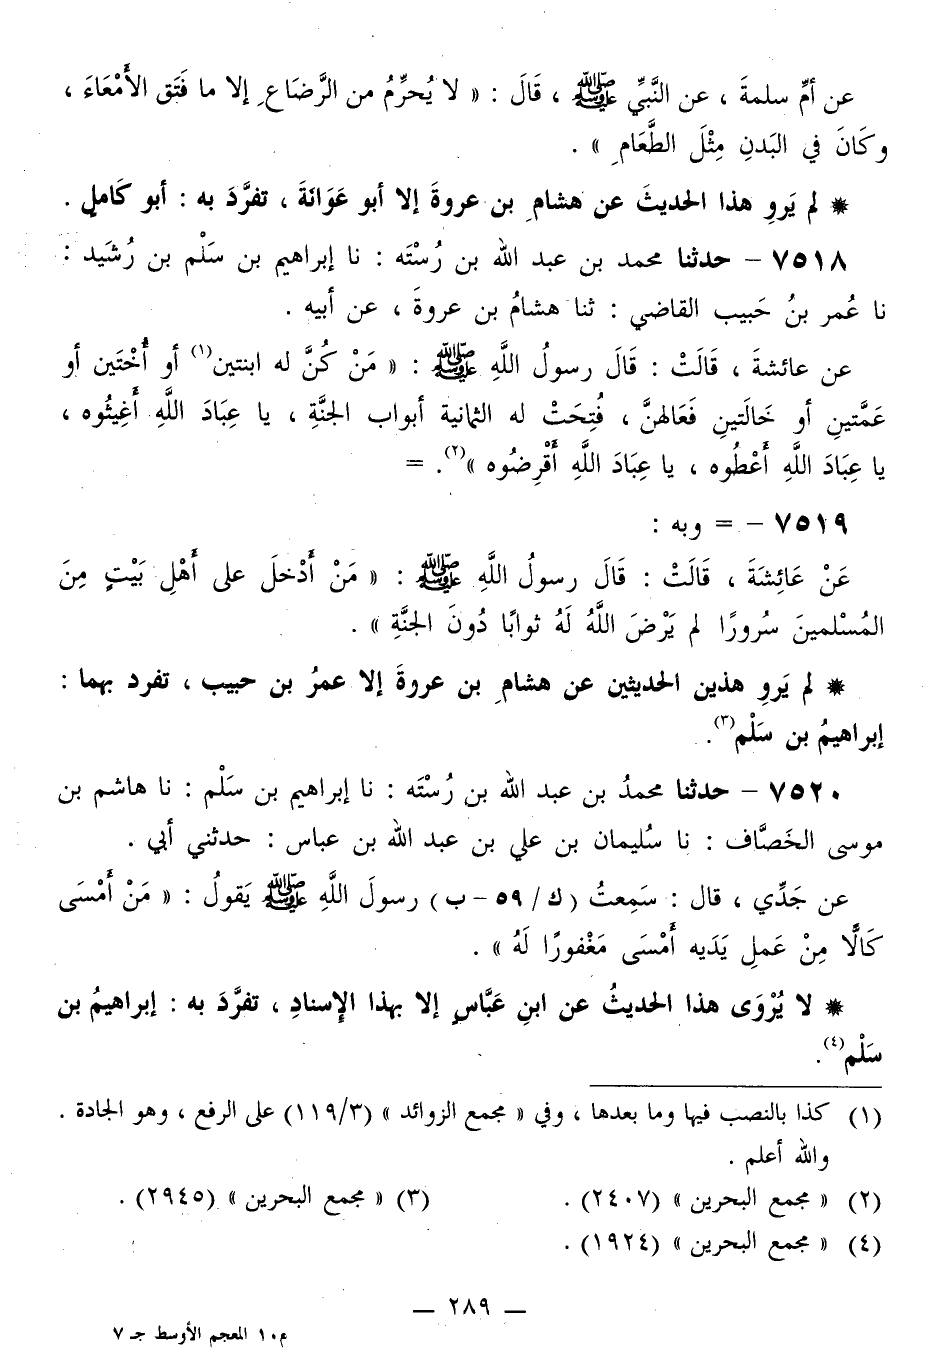 عن أمِّ سلمةَ ، عن النَّبيِّ ﷺ ، قَالَ : « لا يُحرِّمُ من الرَّضَاعِ إلا ما فَتَق الأَمْعَاءَ ،
وكَانَ في البَدنِ مِثْلَ الطَّعَامِ » .
* لم يَروِ هذا الحديثَ عن هشامِ بن عروةَ إلا أبو عَوَانَةَ ، تفرَّدَ به : أبو كَاملٍ .
٧٥١٨ – حدثنا محمد بن عبد الله بن رُستَه : نا إبراهيم بن سَلْم بن رُشَيد :
نا عُمر بنُ حَبيب القاضي : ثنا هشامُ بن عروةَ ، عن أبيه .
عن عائشةَ ، قَالَتْ : قَالَ رسولُ اللَّهِ ﷺ : « مَنْ كُنَّ له ابنتين(١) أو أُخْتَين أو
عَمَّتينِ أو خَالَتينِ فَعَالهنَّ ، فُتِحَتْ له الثمانية أبواب الجنَّةِ ، يا عِبَادَ اللَّهِ أَغِيثُوه ،
يا عِبَادَ اللَّهِ أَعْطُوه ، يا عِبَادَ اللَّهِ أَقْرِضُوه »(٢). =
٧٥١٩ – = وبه :
عَنْ عَائِشَةَ ، قَالَتْ : قَالَ رسولُ اللَّهِ ﷺ : « مَنْ أَدْخلَ على أَهْلِ بَيْتٍ مِنَ
المُسْلمينَ سُرورًا لم يَرْضَ اللَّهُ لَهُ ثوابًا دُونَ الجنَّةِ » .
* لم يَروِ هذين الحديثين عن هشامِ بن عروةَ إلا عمرُ بن حبيب ، تفرد بهما :
إبراهيمُ بن سَلْم(٣).
٧٥٢٠ – حدثنا محمدُ بن عبد الله بن رُسْتَه : نا إبراهيم بن سَلْم : نا هاشم بن
موسى الخَصَّاف : نا سُليمان بن علي بن عبد الله بن عباس : حدثني أبي .
عن جَدِّي ، قال : سَمِعتُ (ك/ ٥٩ – ب) رسولَ اللَّهِ ﷺ يَقولُ : « مَنْ أَمْسَى
كَالًّا مِنْ عَملِ يَدَيه أَمْسَى مَغْفورًا لَهُ » .
* لا يُرْوَى هذا الحديثُ عن ابنِ عَبَّاسٍ إلا بهذا الإِسنادِ ، تفرَّدَ به : إبراهيمُ بن
سَلْم(٤).
(١) كذا بالنصب فيها وما بعدها ، وفي « مجمع الزوائد » (٣/١١٩) على الرفع ، وهو الجادة .
والله أعلم .
(٢) « مجمع البحرين » (٢٤٠٧) . (٣) « مجمع البحرين » (٢٩٤٥) .
(٤) « مجمع البحرين » (١٩٢٤) .
— ٢٨٩ —
م١٠ المعجم الأوسط جـ ٧